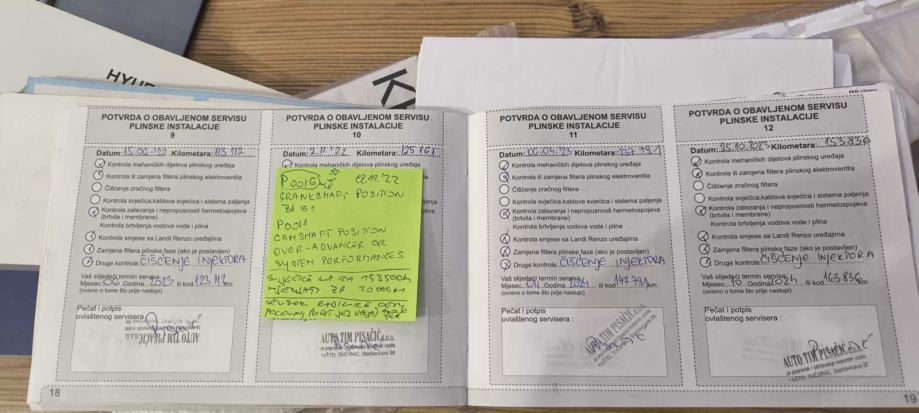 HYU
POTVRDA O OBAVLJENOM SERVISU
PLINSKE INSTALACIJE
9
Datum: Kilometara: 113 112
Kontrola mehaničkih dijelova plinskog uređaja
Kontrola ili zamjena filtera plinskog elektroventila
Čišćenje zračnog filtera
Kontrola svjećica, kablova svjećica i sistema paljenja
Kontrola zatezanja i nepropusnosti hermetospojeva
(brtvila i membrane)
Kontrola brtvljenja vodova vode i plina
Kontrola smjese sa Landi Renzo uređajima
Zamjena filtera plinske faze (ako je postavljen)
Druge kontrole ČIŠĆENJE INJEKTORA
Vaš slijedeći termin servisa
Mjesec Godina 2023 ili kod 123 112 km
(ovisno o tome što prije nastupi)
Pečat i potpis
ovlaštenog servisera :
AUTO TIM PISAČIĆ d.o.o.
18
POTVRDA O OBAVLJENOM SERVISU
PLINSKE INSTALACIJE
10
Datum: 2.11.'22 Kilometara: 125 161
Kontrola mehaničkih dijelova plinskog uređaja
P0016 02.11.'22
CRANKSHAFT POSITION
B1 S1
P0011
CAMSHAFT POSITION
OVER-ADVANCED OR
SYSTEM PERFORMANCES
SVJEĆICE NA 153500km
MJENJATI ZA 20000km
Pečat i potpis
ovlaštenog servisera :
AUTO TIM PISAČIĆ d.o.o.
KAŠTEL SUĆURAC, Starčevićeva 98
POTVRDA O OBAVLJENOM SERVISU
PLINSKE INSTALACIJE
11
Datum: Kilometara: 137 731
Kontrola mehaničkih dijelova plinskog uređaja
Kontrola ili zamjena filtera plinskog elektroventila
Čišćenje zračnog filtera
Kontrola svjećica, kablova svjećica i sistema paljenja
Kontrola zatezanja i nepropusnosti hermetospojeva
(brtvila i membrane)
Kontrola brtvljenja vodova vode i plina
Kontrola smjese sa Landi Renzo uređajima
Zamjena filtera plinske faze (ako je postavljen)
Druge kontrole ČIŠĆENJE INJEKTORA
Vaš slijedeći termin servisa
Mjesec Godina 2024 ili kod 147 731 km
(ovisno o tome što prije nastupi)
Pečat i potpis
ovlaštenog servisera :
AUTO TIM PISAČIĆ d.o.o.
POTVRDA O OBAVLJENOM SERVISU
PLINSKE INSTALACIJE
12
Datum: 25.10.2023 Kilometara: 153.836
Kontrola mehaničkih dijelova plinskog uređaja
Kontrola ili zamjena filtera plinskog elektroventila
Čišćenje zračnog filtera
Kontrola svjećica, kablova svjećica i sistema paljenja
Kontrola zatezanja i nepropusnosti hermetospojeva
(brtvila i membrane)
Kontrola brtvljenja vodova vode i plina
Kontrola smjese sa Landi Renzo uređajima
Zamjena filtera plinske faze (ako je postavljen)
Druge kontrole ČIŠĆENJE INJEKTORA
Vaš slijedeći termin servisa
Mjesec 10 Godina 2024 ili kod 163 836 km
(ovisno o tome što prije nastupi)
Pečat i potpis
ovlaštenog servisera :
AUTO TIM PISAČIĆ
KAŠTEL SUĆURAC, Starčevićeva 98
19